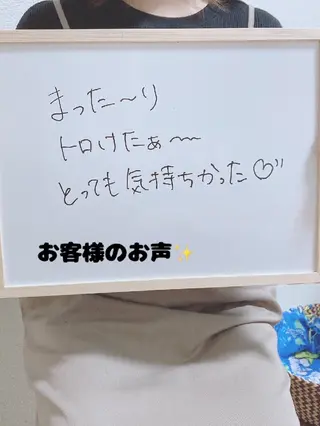 まった〜り
トロけたぁ〜
とっても気持ちかった♡"
お客様のお声✨